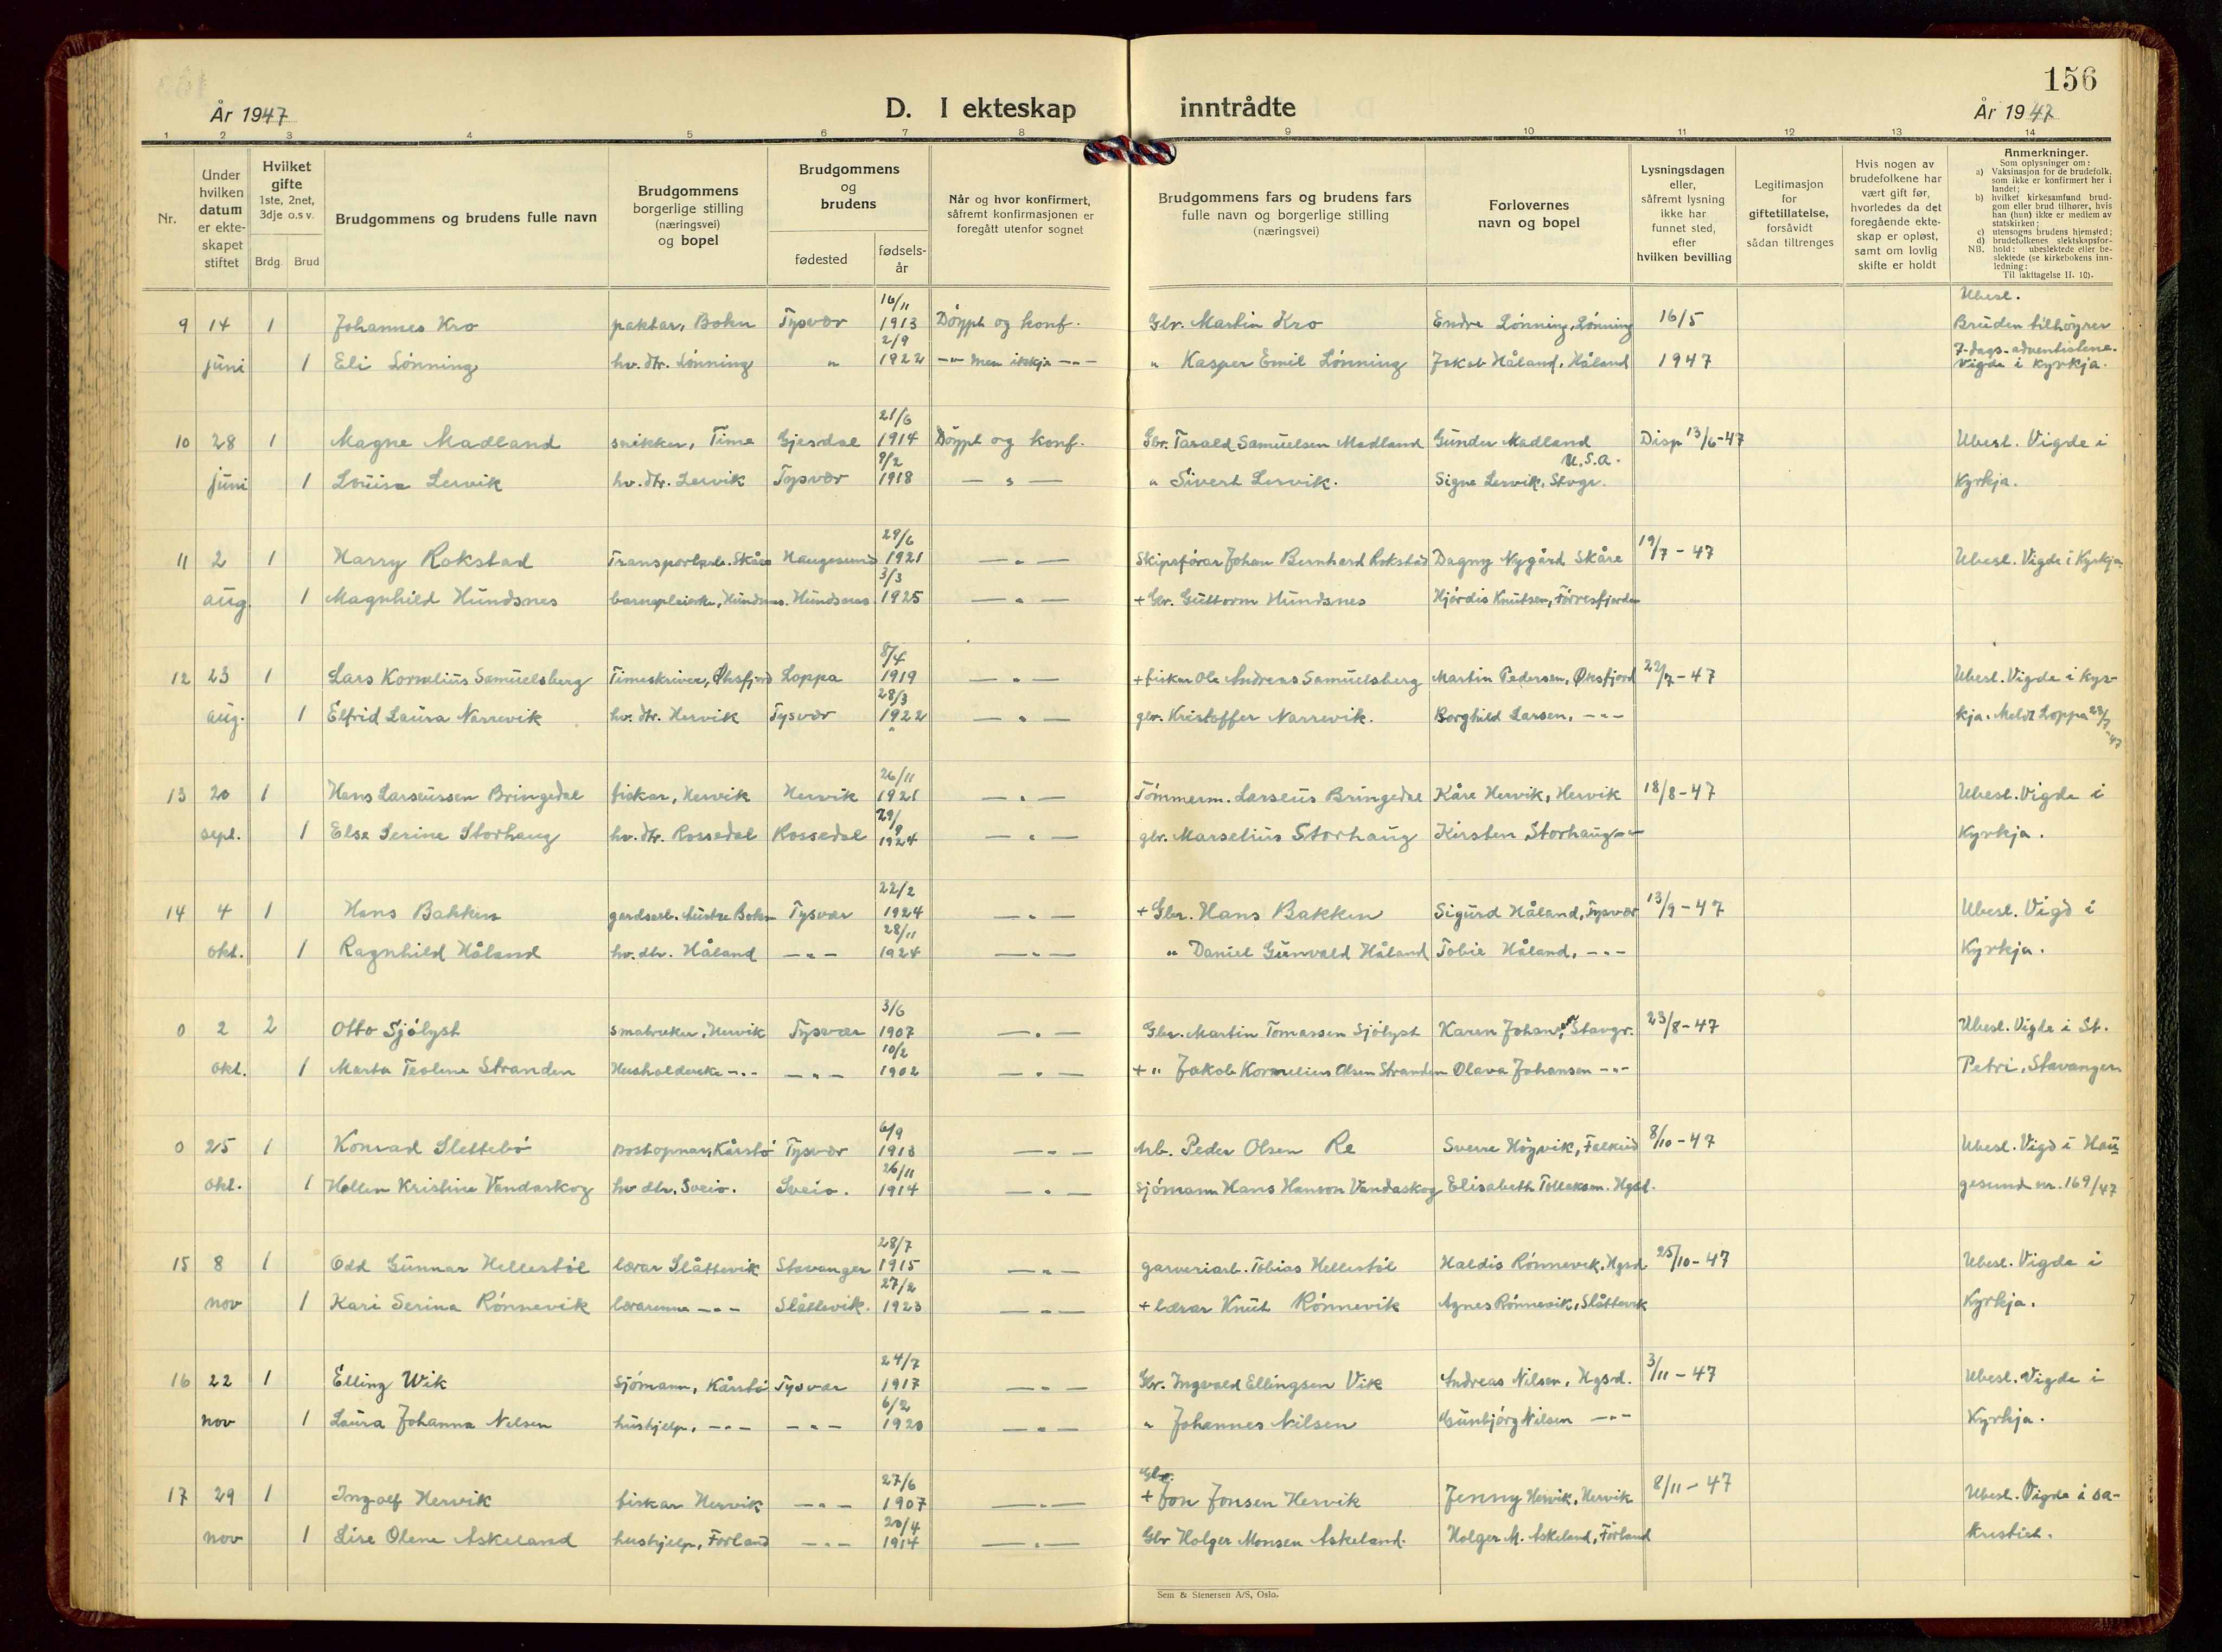 156
År 1947 D. I ekteskap inntrådte År 1947
1 2 3 4 5 6 7 8 9 10 11 12 13 14
Nr.
Under hvilken datum er ekte-skapet stiftet
Hvilket gifte 1ste, 2net, 3dje o.s v.
Brdg. Brud
Brudgommens og brudens fulle navn
Brudgommens borgerlige stilling (næringsvei) og bopel
Brudgommens og brudens
fødested
fødsels-år
Når og hvor konfirmert, såfremt konfirmasjonen er foregått utenfor sognet
Brudgommens fars og brudens fars fulle navn og borgerlige stilling (næringsvei)
Forlovernes navn og bopel
Lysningsdagen eller, såfremt lysning ikke har funnet sted, efter hvilken bevilling
Legitimasjon for giftetillatelse, forsåvidt sådan tiltrenges
Hvis nogen av brudefolkene har vært gift før, hvorledes da det foregående ekte-skap er opløst, samt om lovlig skifte er holdt
Anmerkninger.
Som oplysninger om:
a) Vaksinasjon for de brudefolk, som ikke er konfirmert her i landet;
b) hvilket kirkesamfund brud-gom eller brud tilhører, hvis han (hun) ikke er medlem av statskirken;
c) utensogns brudens hjemsted;
d) brudefolkenes slektskapsfor-hold: ubeslektede eller be-slektede (se kirkebokens inn-ledning:
NB. Til iakttagelse II. 10).
9 14 1 Johannes Kro paktar, Bokn Tysvær 16/11 1913 Döypt og konf. Gbr. Martin Kro Endre Lönning, Lönning 16/5 Ubesl. Bruden tilhöyrer
juni 1 Eli Lönning hv. dtr. Lönning " 2/9 1922 -"- men ikkje -"- " Kasper Emil Lönning Jakob Håland, Håland 1947 7-dags-adventistene. Vigde i kyrkja.
10 28 1 Magne Madland snikker, Time Gjesdal 21/6 1914 Döypt og konf. Gbr. Tarald Samuelsen Madland Gunder Madland U.S.A. Disp 13/6-47 Ubesl. Vigde i
juni 1 Louise Lervik hv. dtr. Lervik Tysvær 9/2 1918 -"- " Sivert Lervik. Signe Lervik, Stvgr. Kyrkja.
11 2 1 Harry Rokstad Skåre Haugesund 29/6 1921 -"- Skipsförar Johan Bernhard Rokstad Dagny Nygård Skåre 19/7-47 Ubesl. Vigde i Kyrkja
aug. 1 Magnhild Hundsnes barnepleierke, Hundsnes. Hundsnes 3/3 1925 -"- + Gbr. Guttorm Hundsnes Hjördis Knutsen, Förresfjorden
12 23 1 Lars Kornelius Samuelsberg Timeskriver, Öksfjord Loppa 8/4 1919 -"- + fiskar Ole Andreas Samuelsberg Martin Pedersen, Öksfjord 22/7-47 Ubesl. Vigde i kyr-
aug. 1 Elfrid Laura Narrevik hv. dtr. Hervik Tysvær 28/3 1922 -"- gbr. Kristoffer Narrevik. Borghild Larsen, -"- kja. Meldt Loppa 23/7-47
13 20 1 Hans Larseussen Bringedal fiskar, Hervik Hervik 26/11 1921 -"- Tömmerm. Larseus Bringedal Kåre Hervik, Hervik 18/8-47 Ubesl. Vigde i
sept. 1 Else Serine Storhaug hv. dtr. Rossedal Rossedal 29/9 1924 -"- gbr. Marselius Storhaug Kirsten Storhaug -"- Kyrkja.
14 4 1 Hans Bakken gardsarb. Austre Bokn Tysvær 22/2 1924 -"- + Gbr. Hans Bakken Sigurd Håland, Tysvær 13/9-47 Ubesl. Vigd i
okt. 1 Ragnhild Håland hv. dtr. Håland -"- 28/11 1924 -"- " Daniel Gunvald Håland Tobie Håland, -"- Kyrkja.
0 2 2 Otto Sjölyst småbruker, Hervik Tysvær 3/6 1907 -"- Gbr. Martin Tomassen Sjölyst Karen Johansen, Stavgr. 23/8-47 Ubesl. Vigde i St.
okt. 1 Marta Teoline Stranden Husholderske -"- -"- 10/2 1902 -"- + " Jakob Kornelius Olsen Stranden Olava Johansen -"- Petri, Stavanger
0 25 1 Konrad Slettebö postopnar, Kårstö Tysvær 6/9 1913 -"- Arb. Peder Olsen Re Sverre Högvik, Falkeid 8/10-47 Ubesl. Vigd i Hau-
okt. 1 Hellen Kristine Vandaskog hv dtr, Sveio. Sveio. 26/11 1914 -"- Sjömann Hans Hanson Vandaskog Elisabeth Tollaksen. Hgsd. gesund nr. 169/47
15 8 1 Odd Gunnar Hellestöl lærar Slåttevik Stavanger 28/7 1915 -"- garveriarb. Tobias Hellestöl Haldis Rönnevik, Hgsd 25/10-47 Ubesl. Vigde i
nov 1 Kari Serina Rönnevik lærarinne -"- Slåttevik. 27/2 1923 -"- + lærar Knut Rönnevik Agnes Rönnevik, Slåttevik Kyrkja.
16 22 1 Elling Wik Sjömann, Kårstö Tysvær 24/7 1917 -"- Gbr. Ingvald Ellingsen Vik Andreas Nilsen, Hgsd. 3/11-47 Ubesl. Vigde i
nov 1 Laura Johanna Nelsen hushjelp, -"- -"- 6/2 1920 -"- " Johannes Nilsen Gunbjörg Nilsen -"- Kyrkja.
17 29 1 Ingolf Hervik fiskar Hervik -"- 27/6 1907 -"- Gbr. + Jon Jonsen Hervik Jenny Hervik, Hervik 8/11-47 Ubesl. Vigde i sa-
nov 1 Lise Olene Askeland hushjelp, Forland -"- 20/4 1914 -"- Gbr Holger Monsen Askeland. Holger M. Askeland, Förland kristiet.
Sem & Stenersen A/S, Oslo.